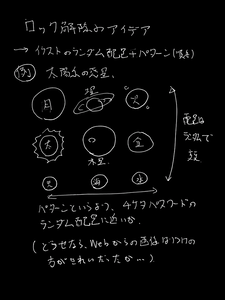 ロック解除のアイデア
→ イラストのランダム配置+パターン(動き)
例) 太陽系の惑星、
月 土星 火
太 木星 金
天 海 水
配置はランダムで
パターンというより、4ケタパスワードの
ランダム配置に近いか。
(どうせなら、Webからの画像は1つ1つの
方がきれいだったか…)